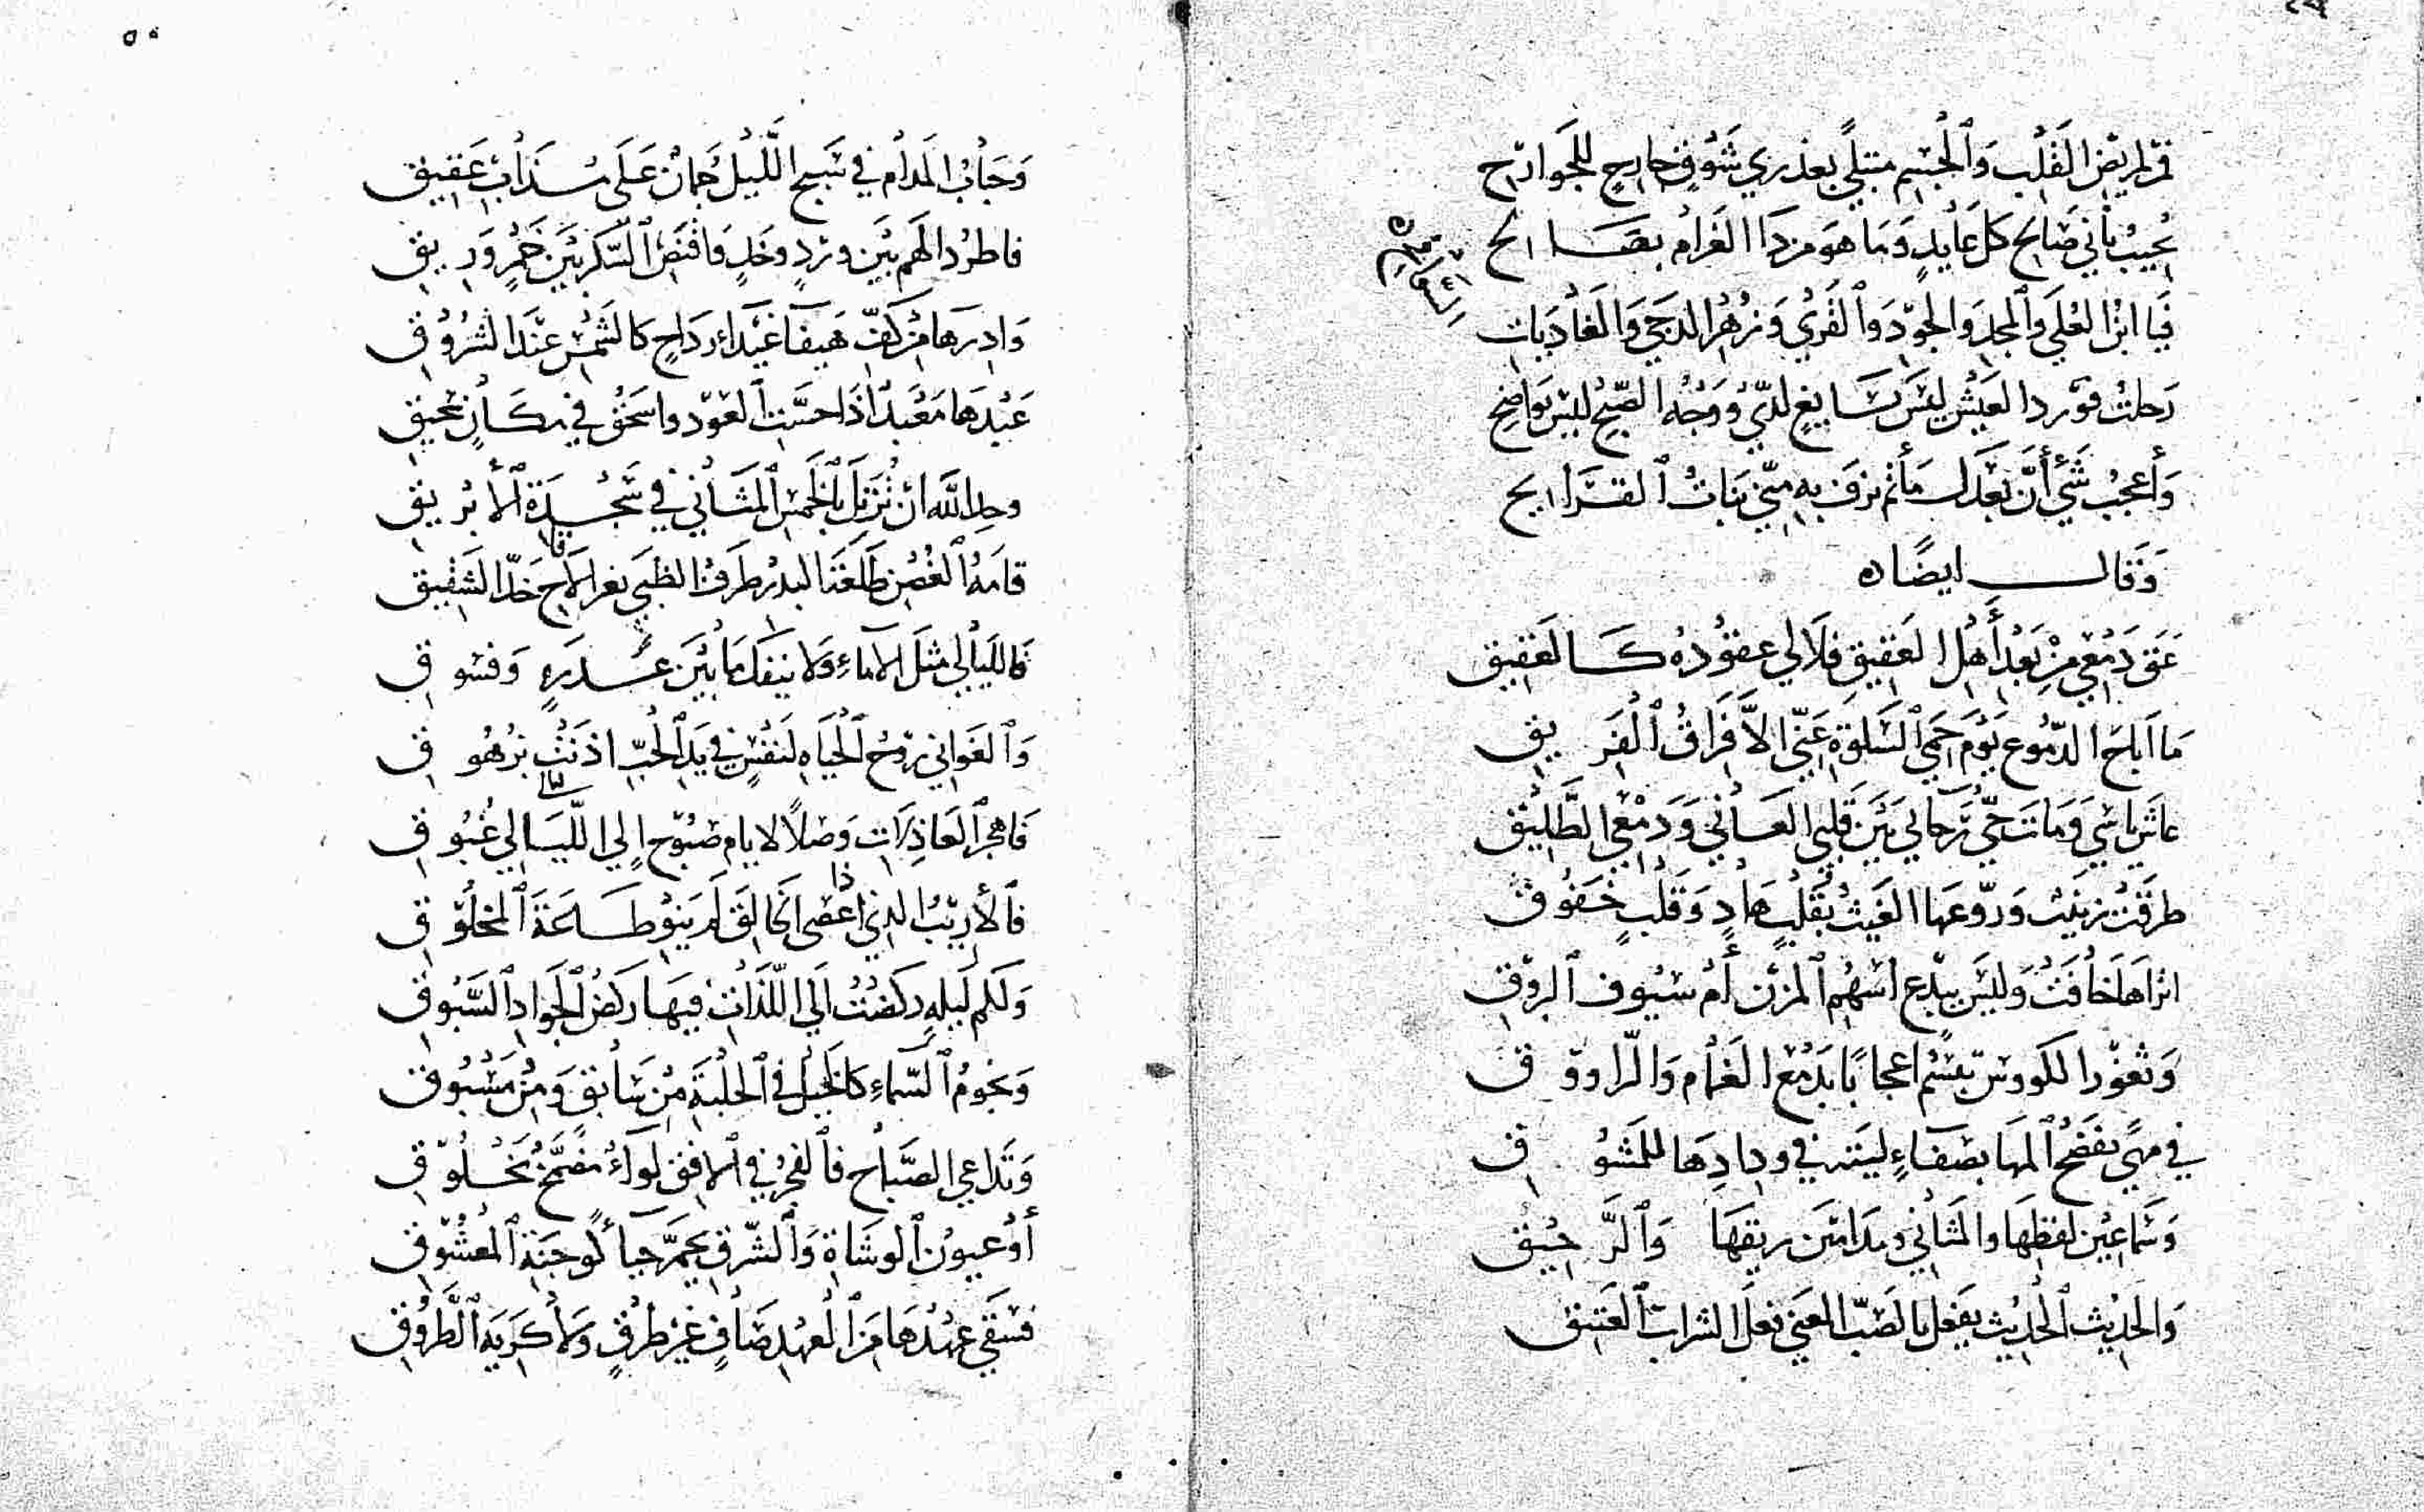 فمر لمريض القلب وَالْجسْم مبتلىً بعذري شَوْقٍ جارحٍ للجَوارح
يُجيبُ بأني صَالح كل عايدٍ وَمَا هوَ من دَاا الغَرام بصَاالح
فَيا ابْن العُلَى وَالمجد وَالجوْد وَالقُرَى وَزُهْر الدجى وَالغَادِيات
السَّوافح
رَحلتَ فوِرد العَيْش ليْسَ بسَايغٍ لديَّ وَوَجْهُ الصّبْح ليْسَ بوَاضح
وَأعجبُ شَيْءٍ أنَّ بَعْدَك مَأتم تزف به منّي بَناتُ القرَايح
وَقال ايضًا ه
عَقَّ دَمْعي مِنْ بَعْدِ أَهْل العَقِيقِ فلآلي عقوْدُهُ كالعَقيق
مَا أباحَ الدّمُوع يَوْمَ حمى السَّلوَة عَنّي الاَّ فِرَاقُ الْفَريق
عاشَ يأسي وَمَاتَ حَيُّ رَجائي بَيْنَ قلبي العَاني وَدَمْعي الطَّليْق
طرقتْ زينب وَرَوّعَهَا الغَيث بقَلْبٍ هَادٍ وَقَلْبٍ خَفُوق
اتراهَا خافَتْ وَليْسَ ببدْع أسْهُم المزْن أمْ سُيُوف البرُوْق
وَثغوْر الكووس تبْسم اعجابًا بدَمْع الغمام وَالرّاووق
في مهىً تفضَحُ المهَا بصَفَاءٍ ليْتَه في ودَادِهَا للمَشُوق
وَسَماعَيْن لفظهَا والمَثاني ومدَامَيْن ريقهَا وَالرَّحيْق
وَالحَديث الْحديْث يفعَل بالصّبّ المعَنى فعلَ الشراب العَتيق
وَحَبابُ المدَام في سَبج اللَّيْل جُمانٌ عَلَى مُذَابِ عَقيق
فاطردْ الهَم بَيْن ورْدٍ وخَدٍ وَاقْنَص السّكْر بَيْنَ خَمْرٍ وَرِيق
وَادِرهَا من كفّ هَيفآ غَيْدَاء رَدَاحٍ كالشّمْس عنْدَ الشُرُوْق
عَبْدهَا مَعْبَدٌ اذَا حسَّت العوْد واسحقُ في مكَانٍ سحيق
وحلا لله ان نُرتل بالخَمس المثَاني في سَجْدَة الأبْريق
قامَةُ الْغُصْن طَلعَة البدْر طرفُ الظبَي ثغر الأقاح خَدّ الشقيق
فالليَالي مثلَ الآماءِ وَلا ينفكّ مَا بَيْنَ غَدرَةٍ وَفسُوق
وَالغَواني رَوْحُ الْحَيَاه لنَفْسٍ في يَدِ الْحُبّ اذنَتْ بزُهُوق
فَاهجر العَاذِلات وَصْلاً لا يام صبُوْح الى اللّيَالي غَبُوق
فالأريْبُ الذي اذا عصى الخالق لم ينو طَاعَةَ المخْلُوْق
وَلكم لَيلةٍ ركضْتُ الَى اللّذَاتْ فيهَا ركضُ الْجَوادِ السَّبُوق
وَنجُومُ السّمآءِ كالخَيْل في الحلْبَة مِنْ سَابق وَمنْ مَسْبُوق
وَتداعى الصَّبَاح فالفجرُ في الافق لوآءٌ مضمّخٌ بخلوْق
أوْ عيوْن الوشَاة وَالشّرق يحمرّ حيآءً لوجنَة المعْشُوْق
فسَقى عهْدَهَا مَن العهْدِ صَافٍ غيْر طرْقٍ وَلاْ كَريه الطَّرُوْق